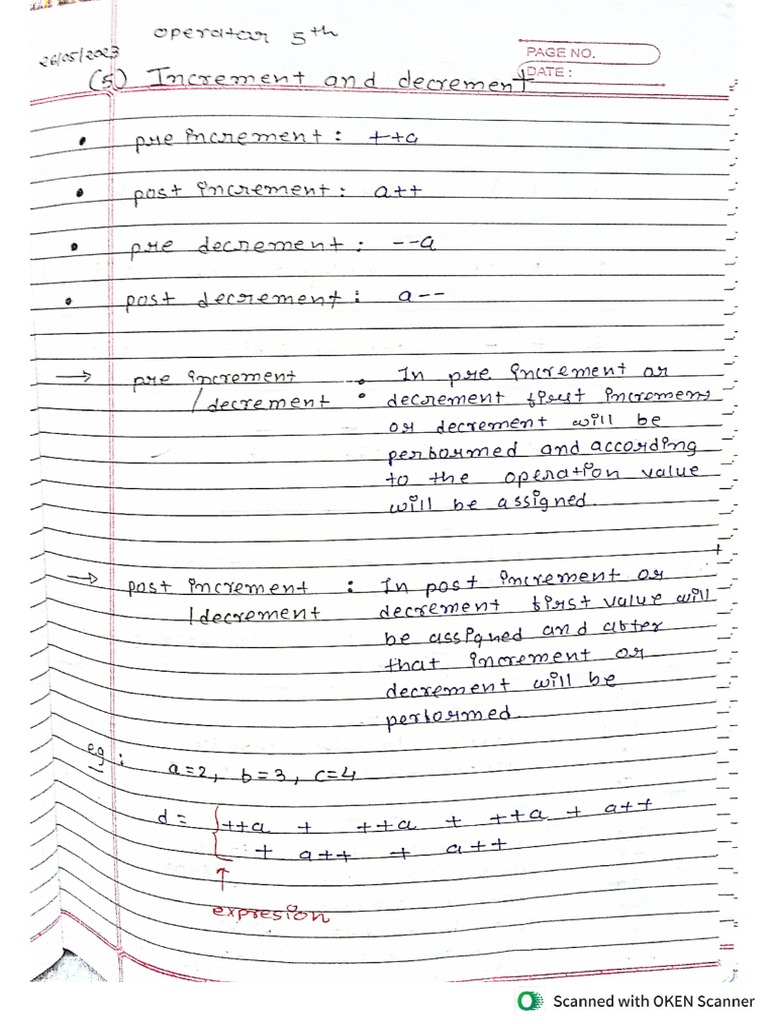 operator 5th
26/05/2023
PAGE NO.
DATE:
(5) Increment and decrement
• pre increment : ++a
• post increment : a++
• pre decrement : --a
• post decrement : a--
→ pre increment : In pre increment or
/decrement decrement first increment
or decrement will be
performed and according
to the operation value
will be assigned.
→ post increment : In post increment or
/decrement decrement first value will
be assigned and after
that increment or
decrement will be
performed.
eg : a=2, b=3, c=4
d = { ++a + ++a + ++a + a++
+ a++ + a++
↑
expresion
Scanned with OKEN Scanner